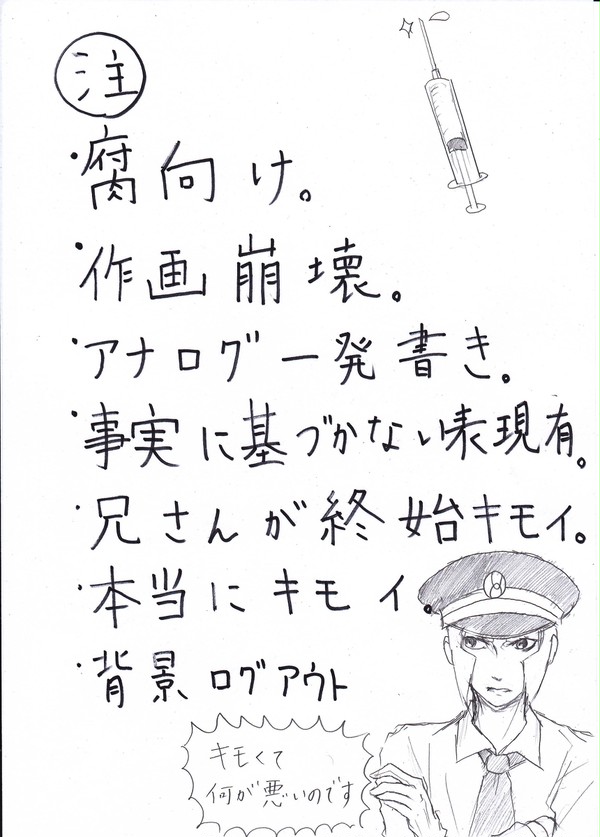 注
・腐向け。
・作画崩壊。
・アナログ一発書き。
・事実に基づかない表現有。
・兄さんが終始キモイ。
・本当にキモイ。
・背景ログアウト
キモくて
何が悪いのです